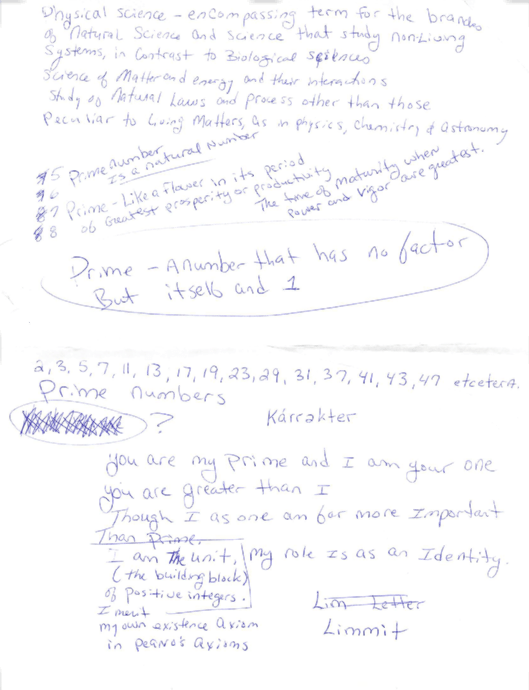 Physical science - encompassing term for the branches
of Natural Science and science that study nonliving
Systems, in Contrast to Biological sciences
Science of Matter and energy and their interactions
Study of Natural Laws and process other than those
Peculiar to Living Matters, as in physics, Chemistry & Astronomy
5 Prime number
Is a natural Number
6
7 Prime - Like a flower in its period
8 of Greatest prosperity or productivity
The time of maturity when
power and vigor are greatest.
Prime - A number that has no factor
But itself and 1
2, 3, 5, 7, 11, 13, 17, 19, 23, 29, 31, 37, 41, 43, 47 etcetera.
Prime numbers
?
Kárrakter
you are my Prime and I am your one
you are greater than I
Though I as one am far more Important
Than Prime.
I am The unit, my role Is as an Identity.
(the building block)
of positive integers.
I merit
my own existence Axiom
in peano's Axioms
Lim Letter
Limmit